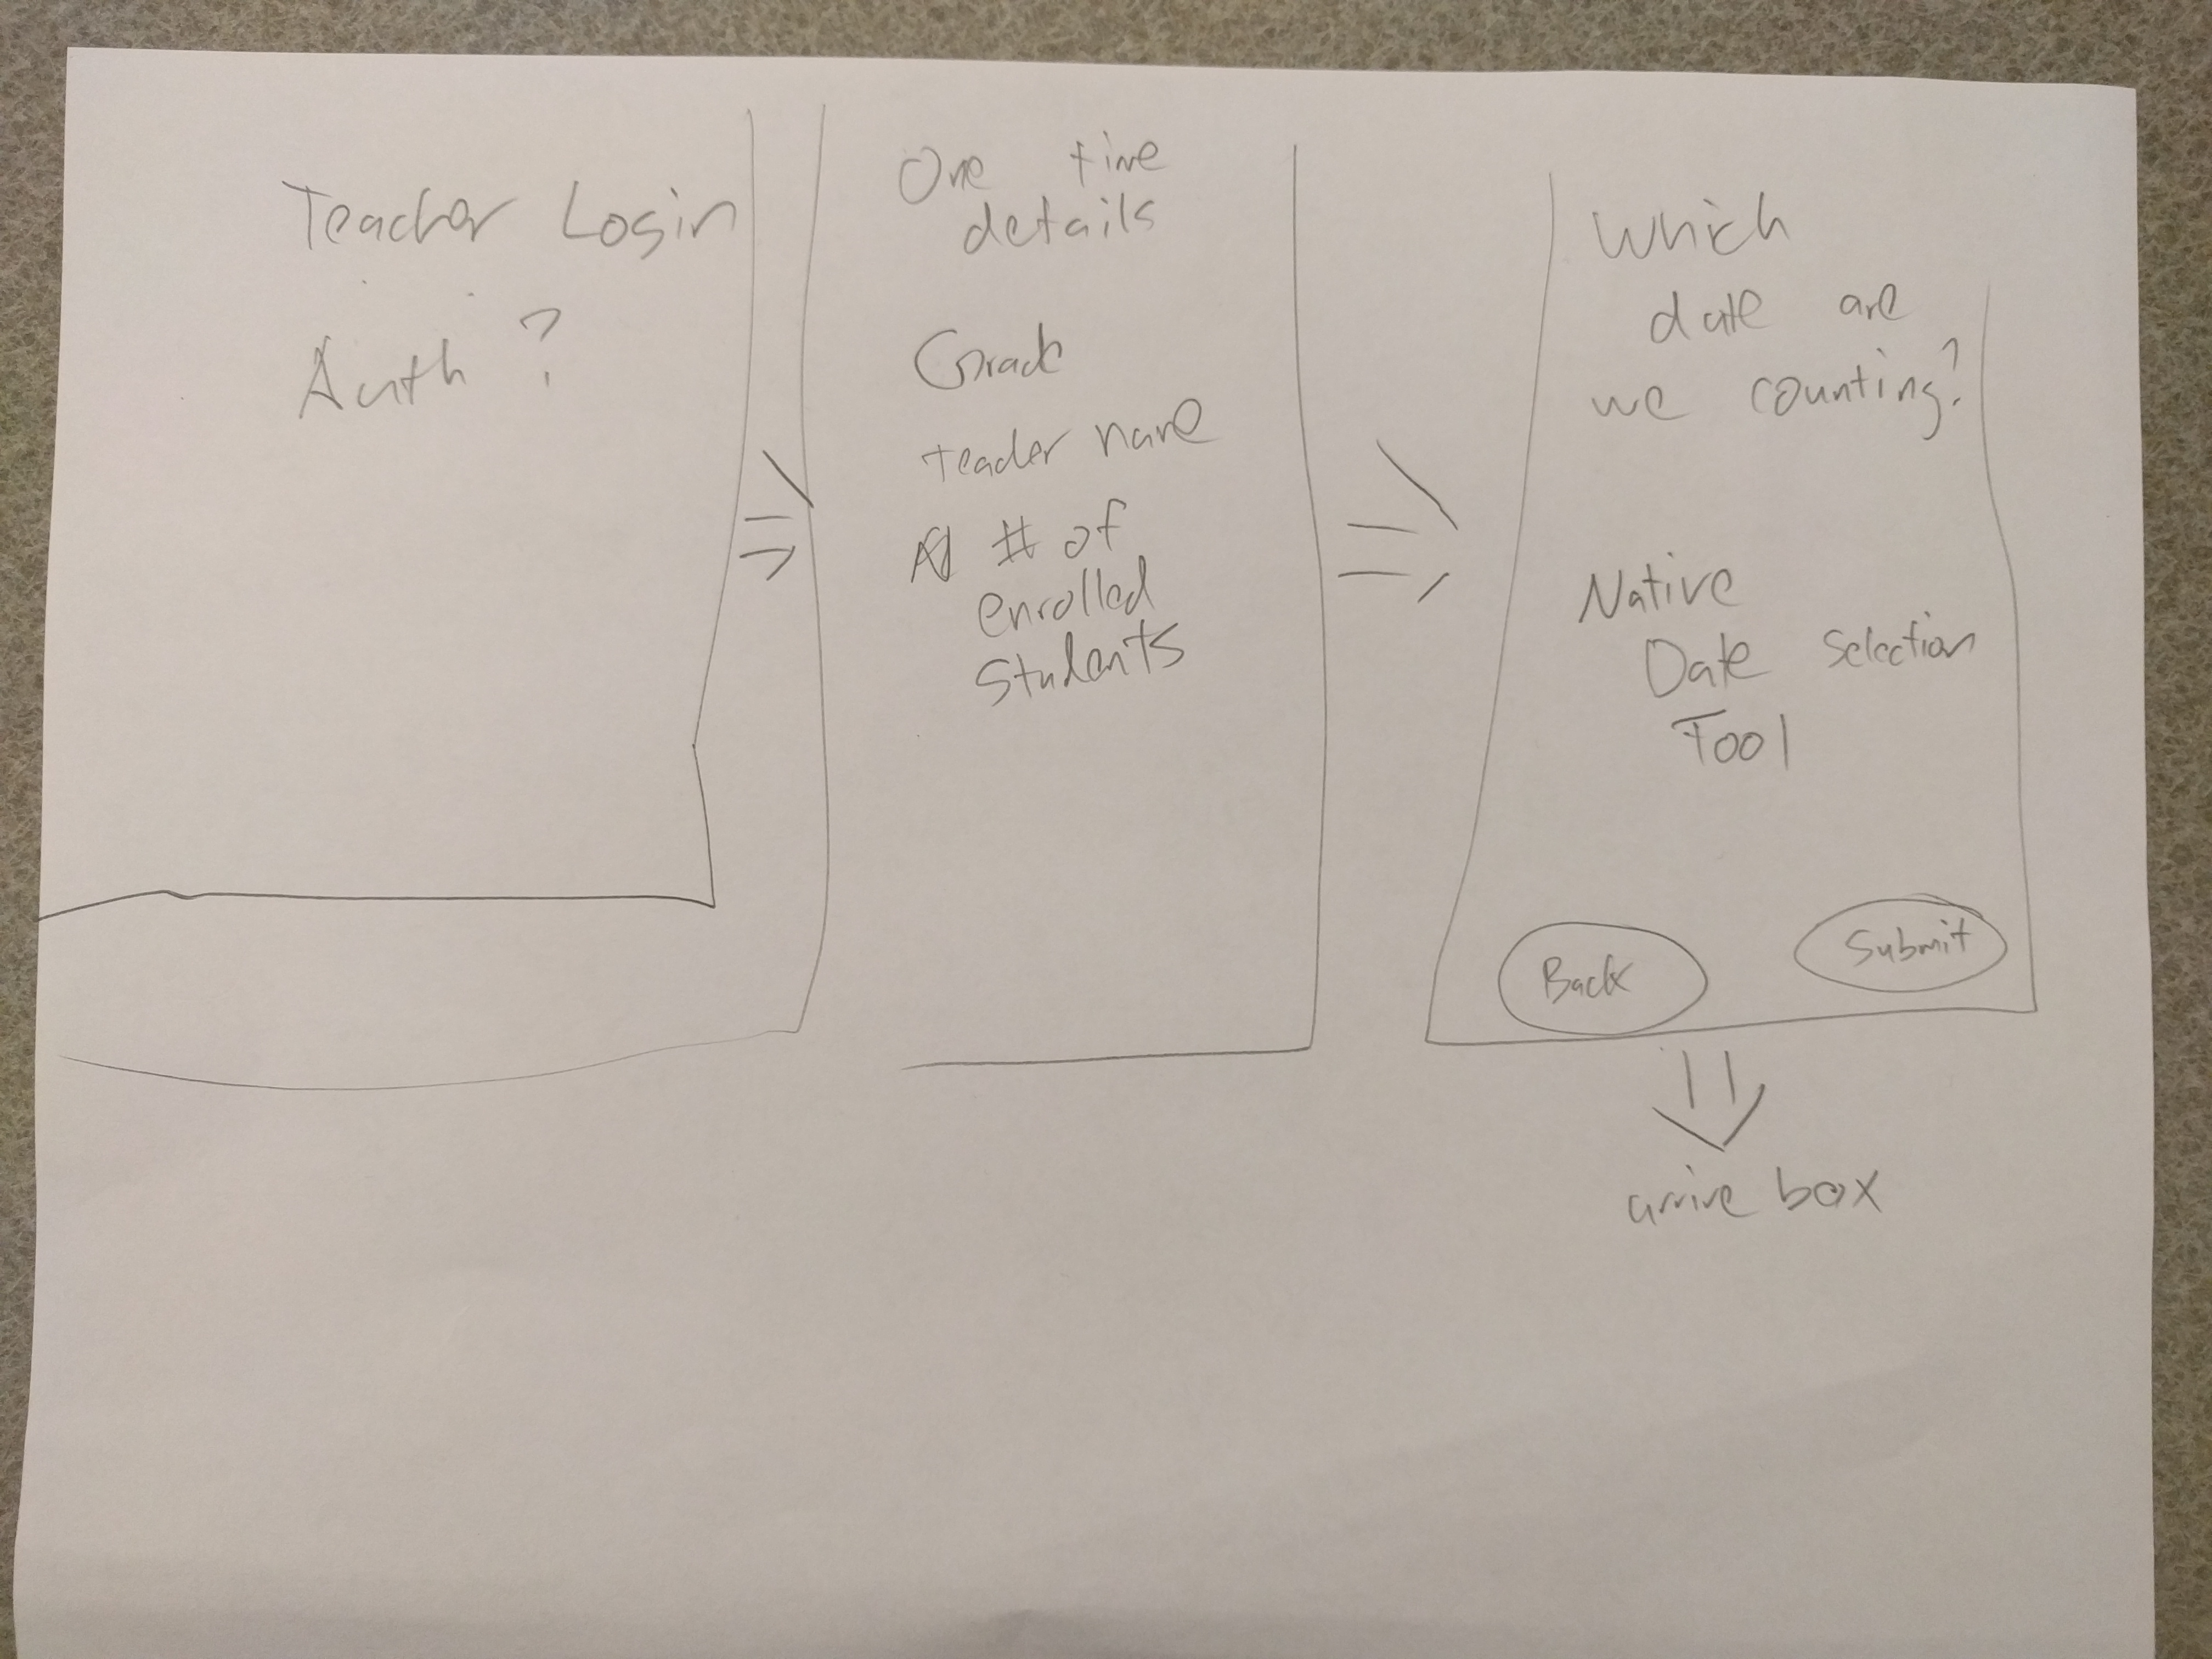 Teacher Login
Auth ?
One time
details
Grade
teacher name
# of
enrolled
Students
Which
date are
we counting?
Native
Date Selection
Tool
Back
Submit
arrive box